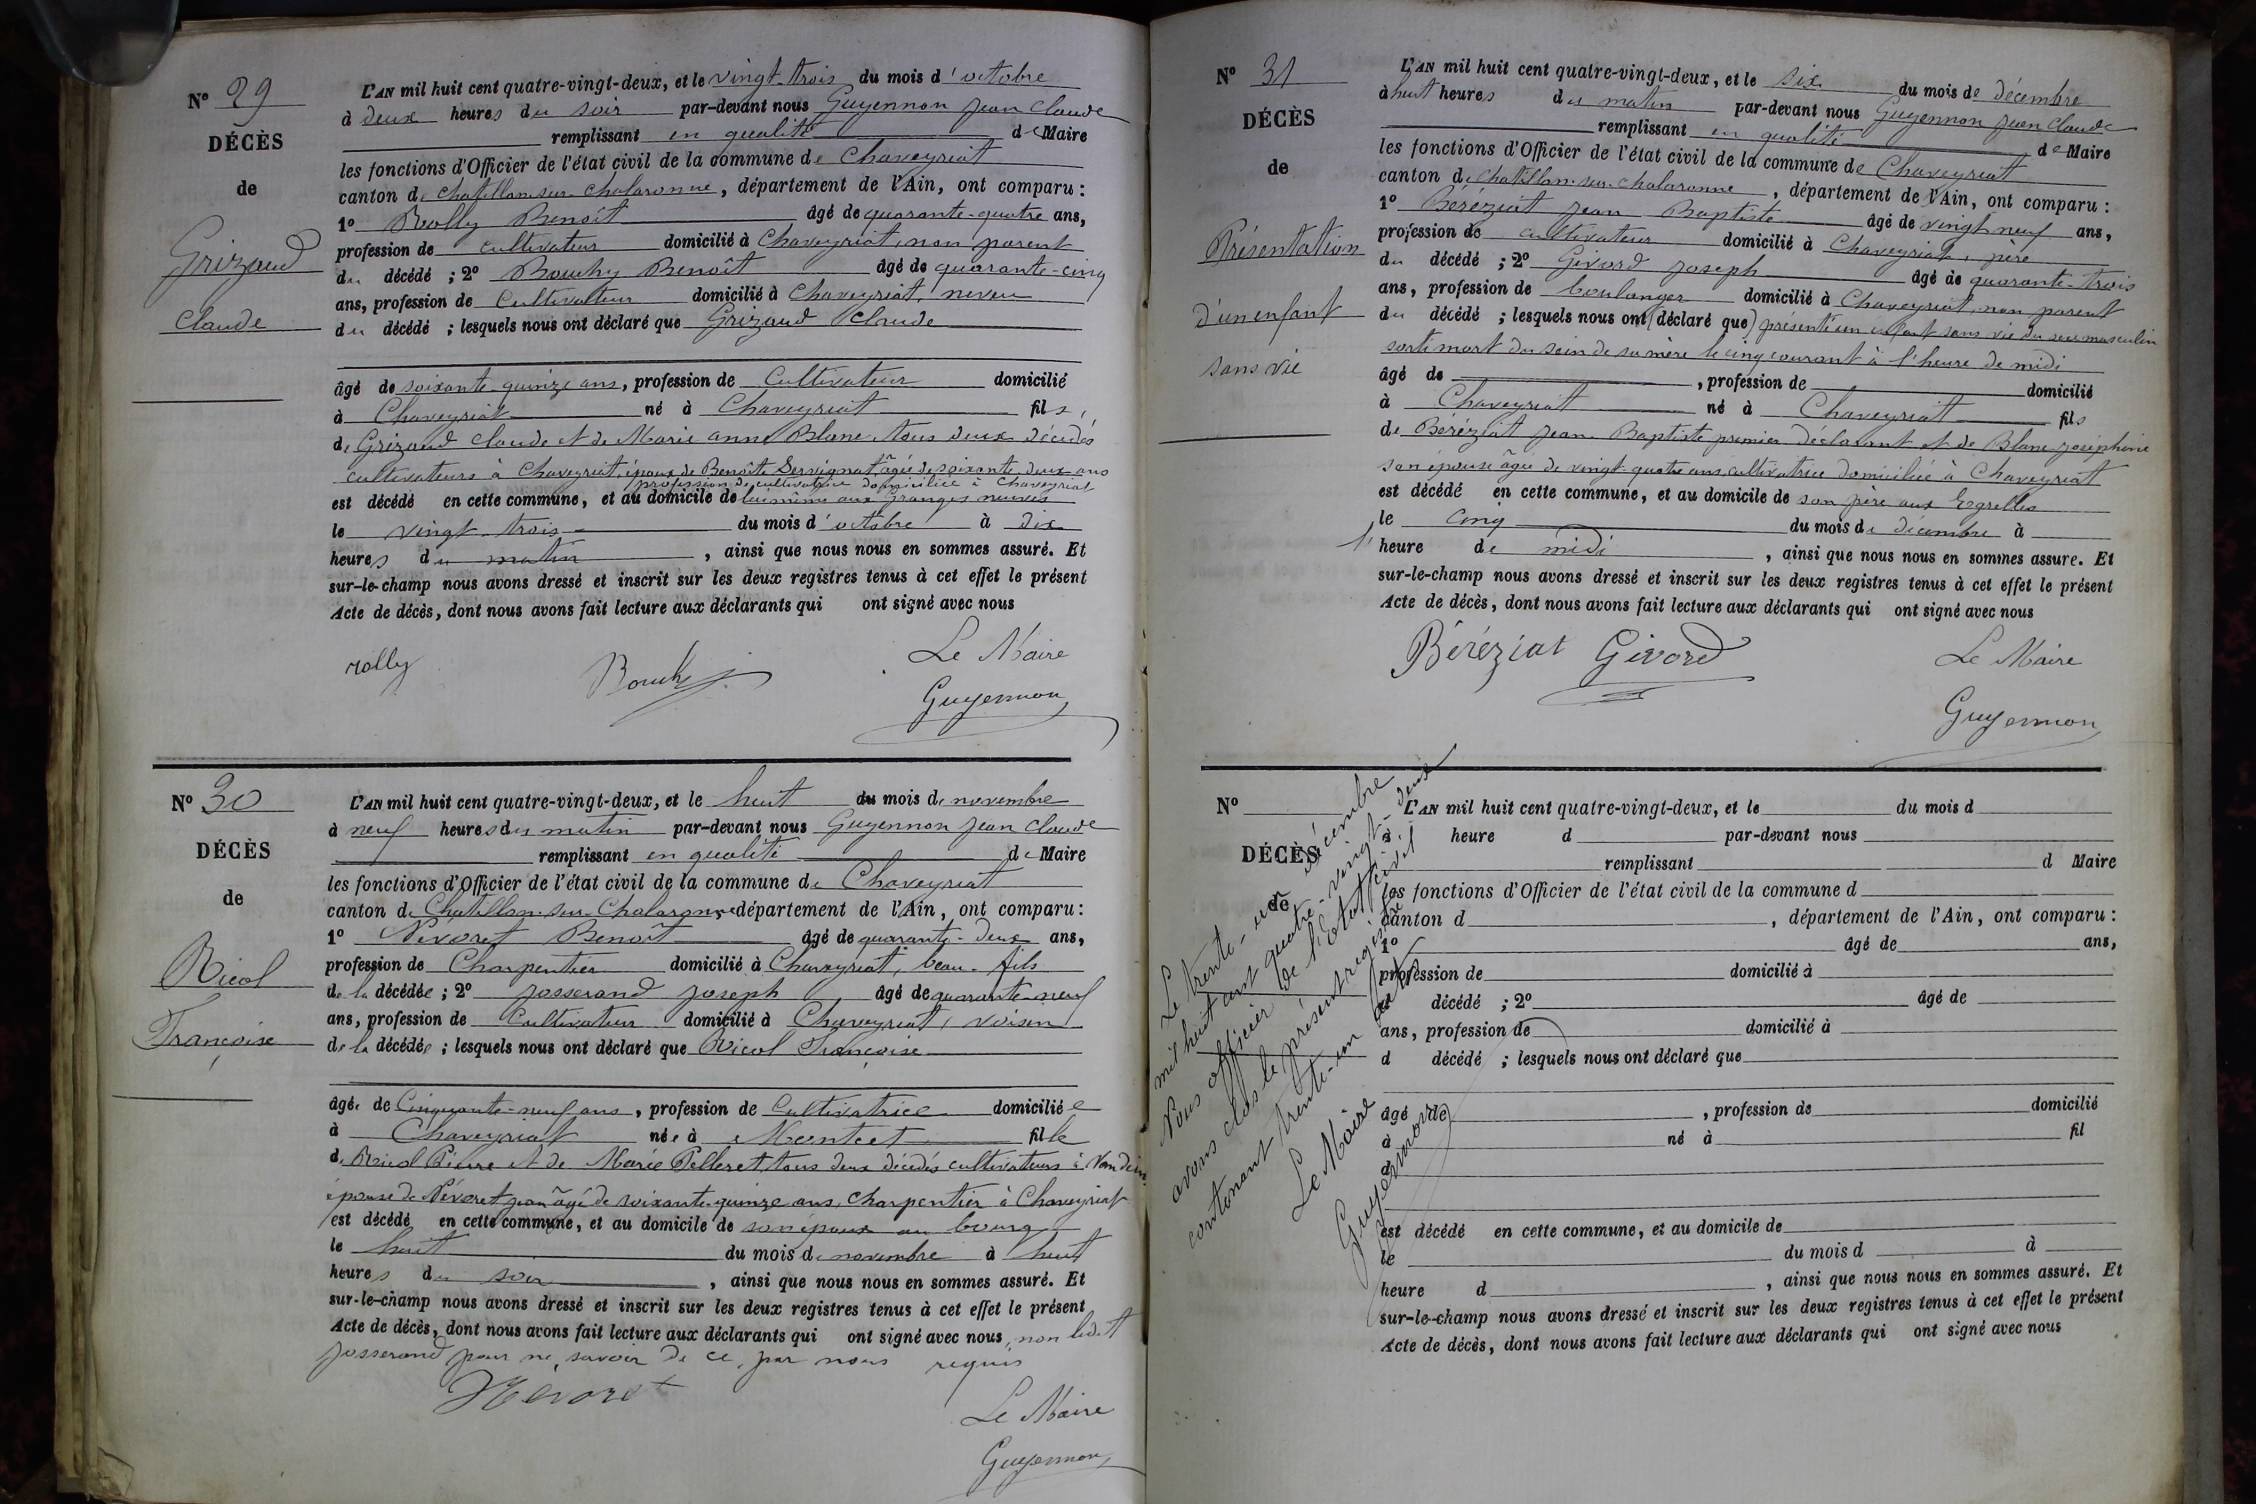 N° 29
DÉCÈS
de
Grizaud
Claude
L'AN mil huit cent quatre-vingt-deux, et le vingt-trois du mois d'octobre
à deux heures du soir par-devant nous Guyennon Jean Claude
remplissant en qualité de Maire
les fonctions d'Officier de l'état civil de la commune de Chaveyriat
canton de Chatillon-sur-Chalaronne, département de l'Ain, ont comparu :
1° Rolly Benoît âgé de quarante-quatre ans,
profession de cultivateur domicilié à Chaveyriat, non parent
du décédé ; 2° Bouchy Benoît âgé de quarante-cinq
ans, profession de Cultivateur domicilié à Chaveyriat, neveu
du décédé ; lesquels nous ont déclaré que Grizaud Claude
âgé de soixante-quinze ans, profession de Cultivateur domicilié
à Chaveyriat né à Chaveyriat fils,
de Grizaud Claude et de Marie anne Blanc, tous deux décédés
cultivateurs à Chaveyriat, époux de Benoîte Servignat âgée de soixante-deux ans
profession de cultivatrice domiciliée à Chaveyriat
est décédé en cette commune, et au domicile de lui même aux Granges neuves
le vingt-trois du mois d'octobre à dix
heures du matin, ainsi que nous nous en sommes assuré. Et
sur-le-champ nous avons dressé et inscrit sur les deux registres tenus à cet effet le présent
Acte de décès, dont nous avons fait lecture aux déclarants qui ont signé avec nous
rolly Bouchy Le Maire
Guyennon
N° 30
DÉCÈS
de
Ricol
Françoise
L'AN mil huit cent quatre-vingt-deux, et le huit du mois de novembre
à neuf heures du matin par-devant nous Guyennon Jean Claude
remplissant en qualité de Maire
les fonctions d'Officier de l'état civil de la commune de Chaveyriat
canton de Chatillon-sur-Chalaronne département de l'Ain, ont comparu :
1° Névoret Benoît âgé de quarante-deux ans,
profession de Charpentier domicilié à Chaveyriat, beau-fils
de la décédée ; 2° Josserand Joseph âgé de quarante-neuf
ans, profession de Cultivateur domicilié à Chaveyriat, voisin
de la décédée ; lesquels nous ont déclaré que Ricol Françoise
âgée de Cinquante-neuf ans, profession de Cultivatrice domiciliée
à Chaveyriat née à Montcet fille
de Ricol Pierre et de Marie Pelleret, tous deux décédés cultivateurs à Vandeins
épouse de Névoret Jean âgé de soixante-quinze ans, Charpentier à Chaveyriat
est décédé en cette commune, et au domicile de son époux au bourg
le huit du mois de novembre à huit
heures du soir, ainsi que nous nous en sommes assuré. Et
sur-le-champ nous avons dressé et inscrit sur les deux registres tenus à cet effet le présent
Acte de décès, dont nous avons fait lecture aux déclarants qui ont signé avec nous, non ledit
Josserand pour ne savoir de ce, par nous requis
Névoret
Le Maire
Guyennon
N° 31
DÉCÈS
de
Présentation
d'un enfant
sans vie
L'AN mil huit cent quatre-vingt-deux, et le six du mois de décembre
à huit heures du matin par-devant nous Guyennon Jean Claude
remplissant en qualité de Maire
les fonctions d'Officier de l'état civil de la commune de Chaveyriat
canton de Chatillon-sur-Chalaronne, département de l'Ain, ont comparu :
1° Béréziat Jean Baptiste âgé de vingt-neuf ans,
profession de cultivateur domicilié à Chaveyriat, père
du décédé ; 2° Givord Joseph âgé de quarante-trois
ans, profession de boulanger domicilié à Chaveyriat, non parent
du décédé ; lesquels nous ont (déclaré que) présenté un enfant sans vie du sexe masculin
sorti mort du sein de sa mère le cinq courant à l'heure de midi
âgé de , profession de domicilié
à Chaveyriat né à Chaveyriat fils
de Béréziat Jean-Baptiste premier déclarant et de Blanc Joséphine
son épouse âgée de vingt-quatre ans, cultivatrice domiciliée à Chaveyriat
est décédé en cette commune, et au domicile de son père aux Egrelles
le cinq du mois de decembre à
l'heure de midi, ainsi que nous nous en sommes assuré. Et
sur-le-champ nous avons dressé et inscrit sur les deux registres tenus à cet effet le présent
Acte de décès, dont nous avons fait lecture aux déclarants qui ont signé avec nous
Béréziat Givord Le Maire
Guyennon
N°
DÉCÈS
de
Le trente-un décembre
mil huit cent quatre-vingt-deux
Nous officier de l'Etat civil
avons clos le présent registre
contenant trente-un actes
Le Maire
Guyennon
L'AN mil huit cent quatre-vingt-deux, et le du mois d
à heure d par-devant nous
remplissant d Maire
les fonctions d'Officier de l'état civil de la commune d
canton d , département de l'Ain, ont comparu :
1° âgé de ans,
profession de domicilié à
d décédé ; 2° âgé de
ans, profession de domicilié à
d décédé ; lesquels nous ont déclaré que
âgé de , profession de domicilié
à né à fil
d
est décédé en cette commune, et au domicile de
le du mois d à
heure d , ainsi que nous nous en sommes assuré. Et
sur-le-champ nous avons dressé et inscrit sur les deux registres tenus à cet effet le présent
Acte de décès, dont nous avons fait lecture aux déclarants qui ont signé avec nous